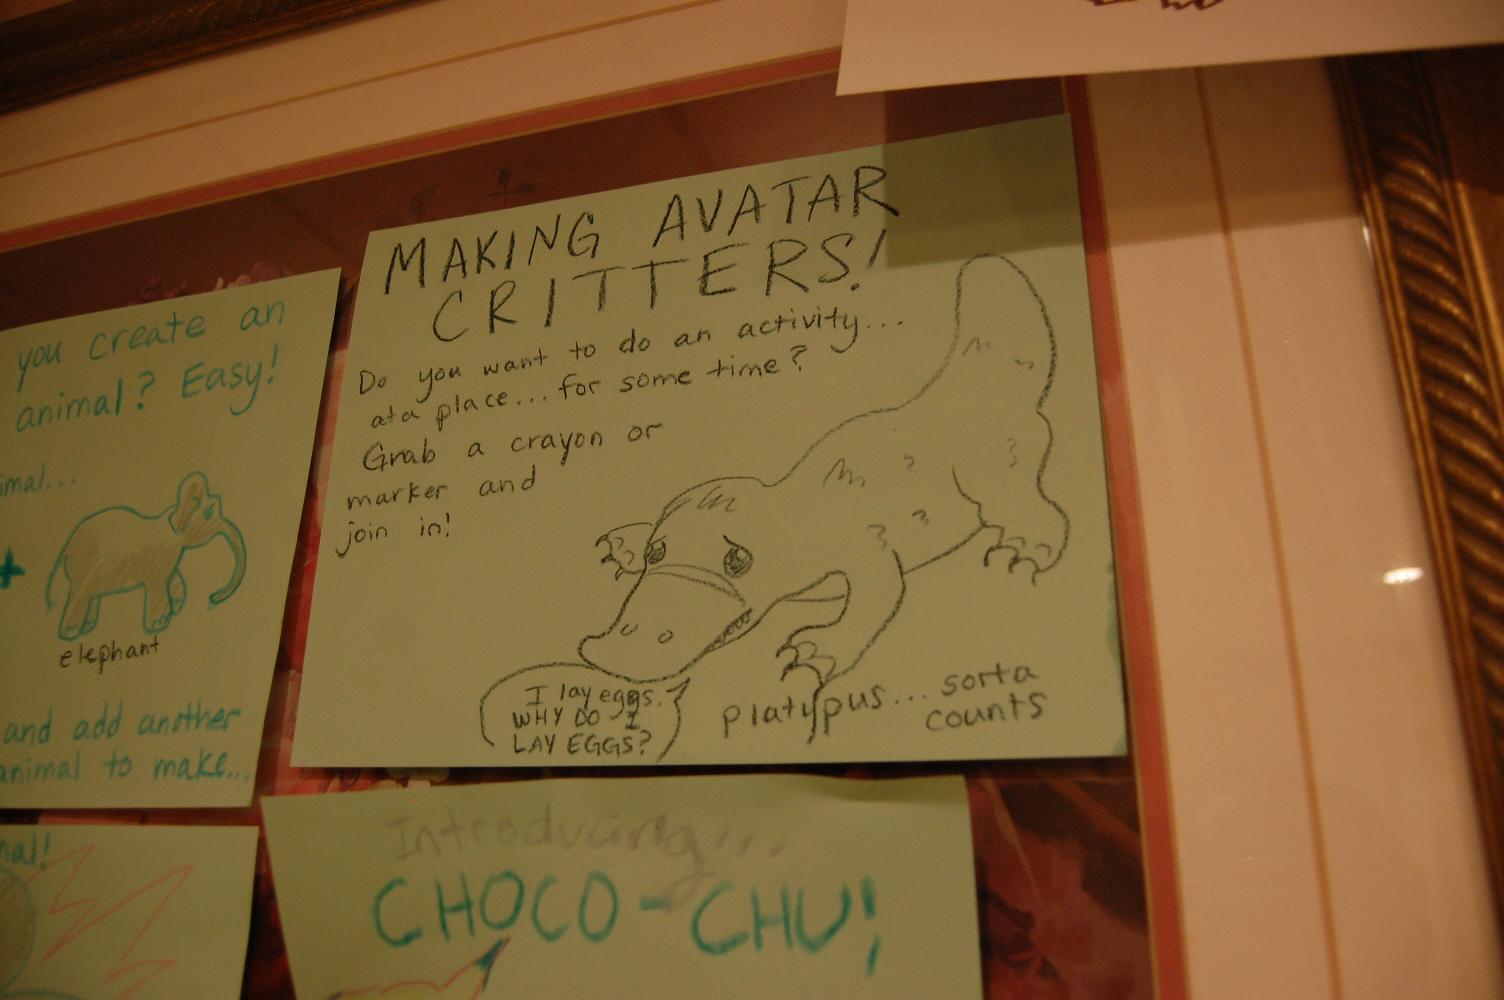 you create an
animal? Easy!
imal...
elephant
and add another
animal to make...
nal!
MAKING AVATAR
CRITTERS!
Do you want to do an activity...
at a place... for some time?
Grab a crayon or
marker and
join in!
I lay eggs.
WHY DO I
LAY EGGS?
platypus... sorta
counts
Introducing...
CHOCO-CHU!